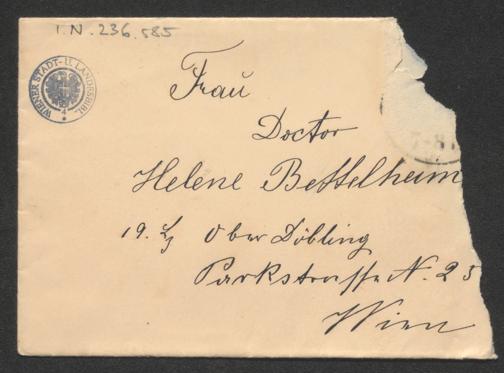 I.N. 236.585
WIENER STADT- U. LANDESBIBL.
Frau
Doctor
Helene Bettelheim
19. Ober Döbling
Parkstrasse N. 25
Wien